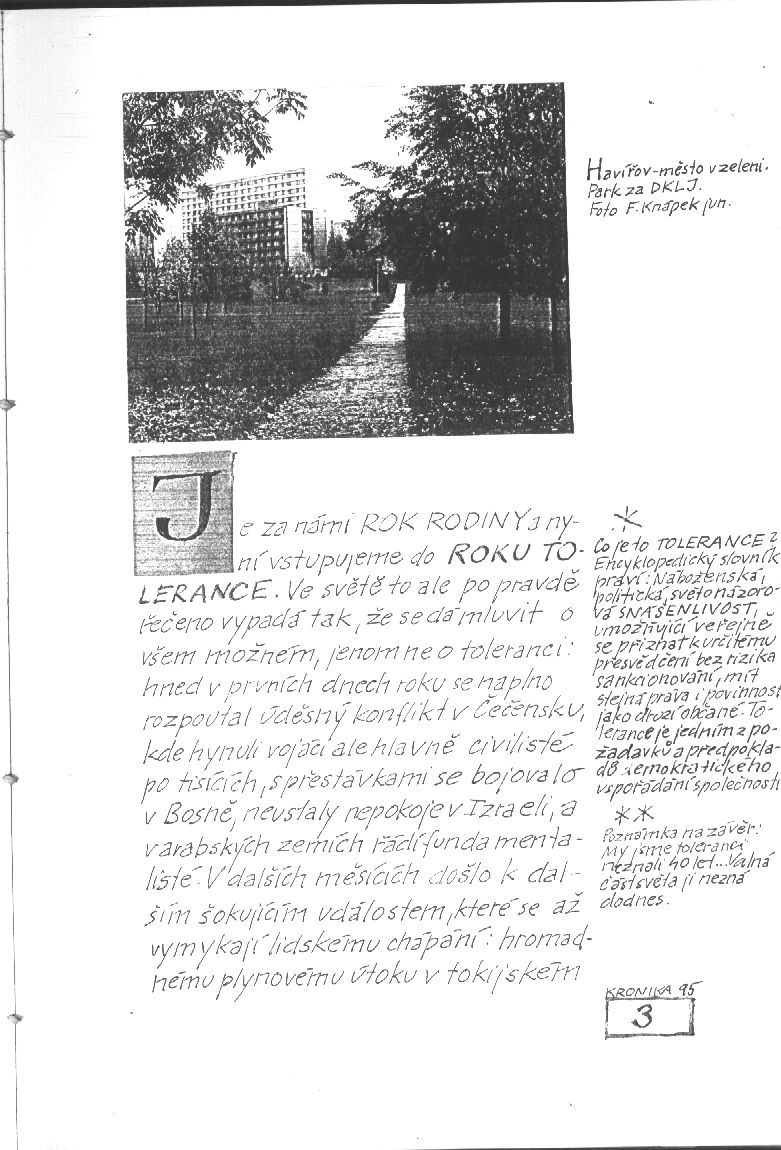 Havířov-město v zeleni.
Park za DKLJ.
Foto F. Knápek jun.
Je za námi ROK RODINY a ny-
ní vstupujeme do ROKU TO-
LERANCE. Ve světě to ale po pravdě
řečeno vypadá tak, že se dá mluvit o
všem možném, jenom ne o toleranci:
hned v prvních dnech roku se naplno
rozpoutal úděsný konflikt v Čečensku,
kde hynuli vojáci ale hlavně civilisté
po tisících, s přestávkami se bojovalo
v Bosně, neustaly nepokoje v Izraeli, a
v arabských zemích řádí fundamenta-
listé. V dalších měsících došlo k dal-
ším šokujícím událostem, které se až
vymykají lidskému chápání: hromad-
nému plynovému útoku v tokijském
*
Co je to TOLERANCE?
Encyklopedický slovník
praví: Náboženská,
politická, světonázoro-
vá SNÁŠENLIVOST,
umožňující veřejně
se přiznat k určitému
přesvědčení bez rizika
sankcionování, mít
stejná práva i povinnosti
jako druzí občané. To-
lerance je jedním z po-
žadavků a předpokla-
dů demokratického
uspořádání společnosti
**
Poznámka na závěr:
My jsme toleranci
neznali 40 let... Valná
část světa ji nezná
dodnes.
KRONIKA 95
3